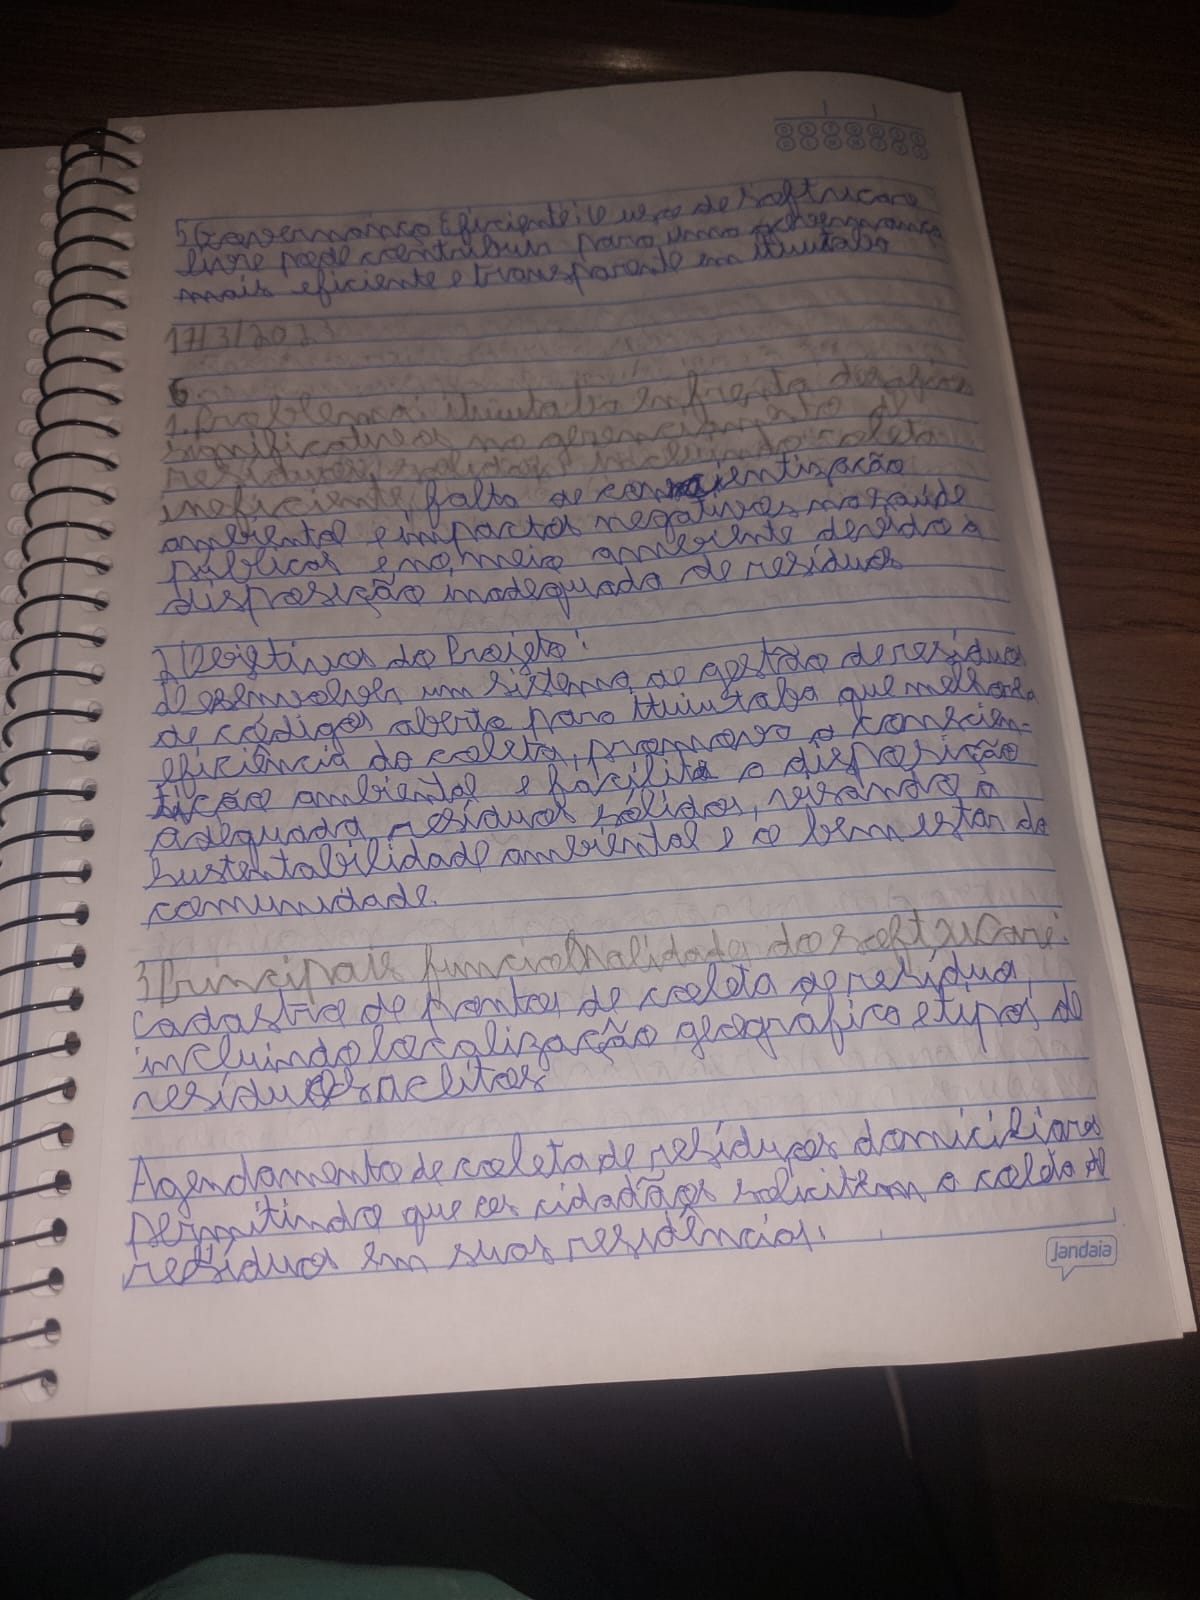 5 Governança Eficiente: O uso de software
livre pode contribuir para uma governança
mais eficiente e transparente em ituiutaba
17/3/2023
6.
1. Problema: ituiutaba enfrenta desafios
significativos no gerenciamento de
resíduos solidos, incluindo coleta
ineficiente, falta de conscientização
ambiental e impactos negativos na saúde
públicas e no meio ambiente devido a
disposição inadequada de resíduos
2 Objetivos do Projeto:
desenvolver um sistema de gestão de resíduos
de códigos aberto para Ituiutaba que melhore a
eficiência da coleta, promova a conscien-
tização ambiental e facilite a disposição
adequada resíduos sólidos, visando a
sustentabilidade ambiental e o bem estar da
comunidade.
3 Principais funcionalidades do software:
Cadastro de pontos de coleta de resídua,
incluindo localização geográfico e tipos de
resíduos aceitos
Agendamento de coleta de resíduos domiciliares
permitindo que os cidadãos solicitem a coleta de
resíduos em suas residências.
Jandaia